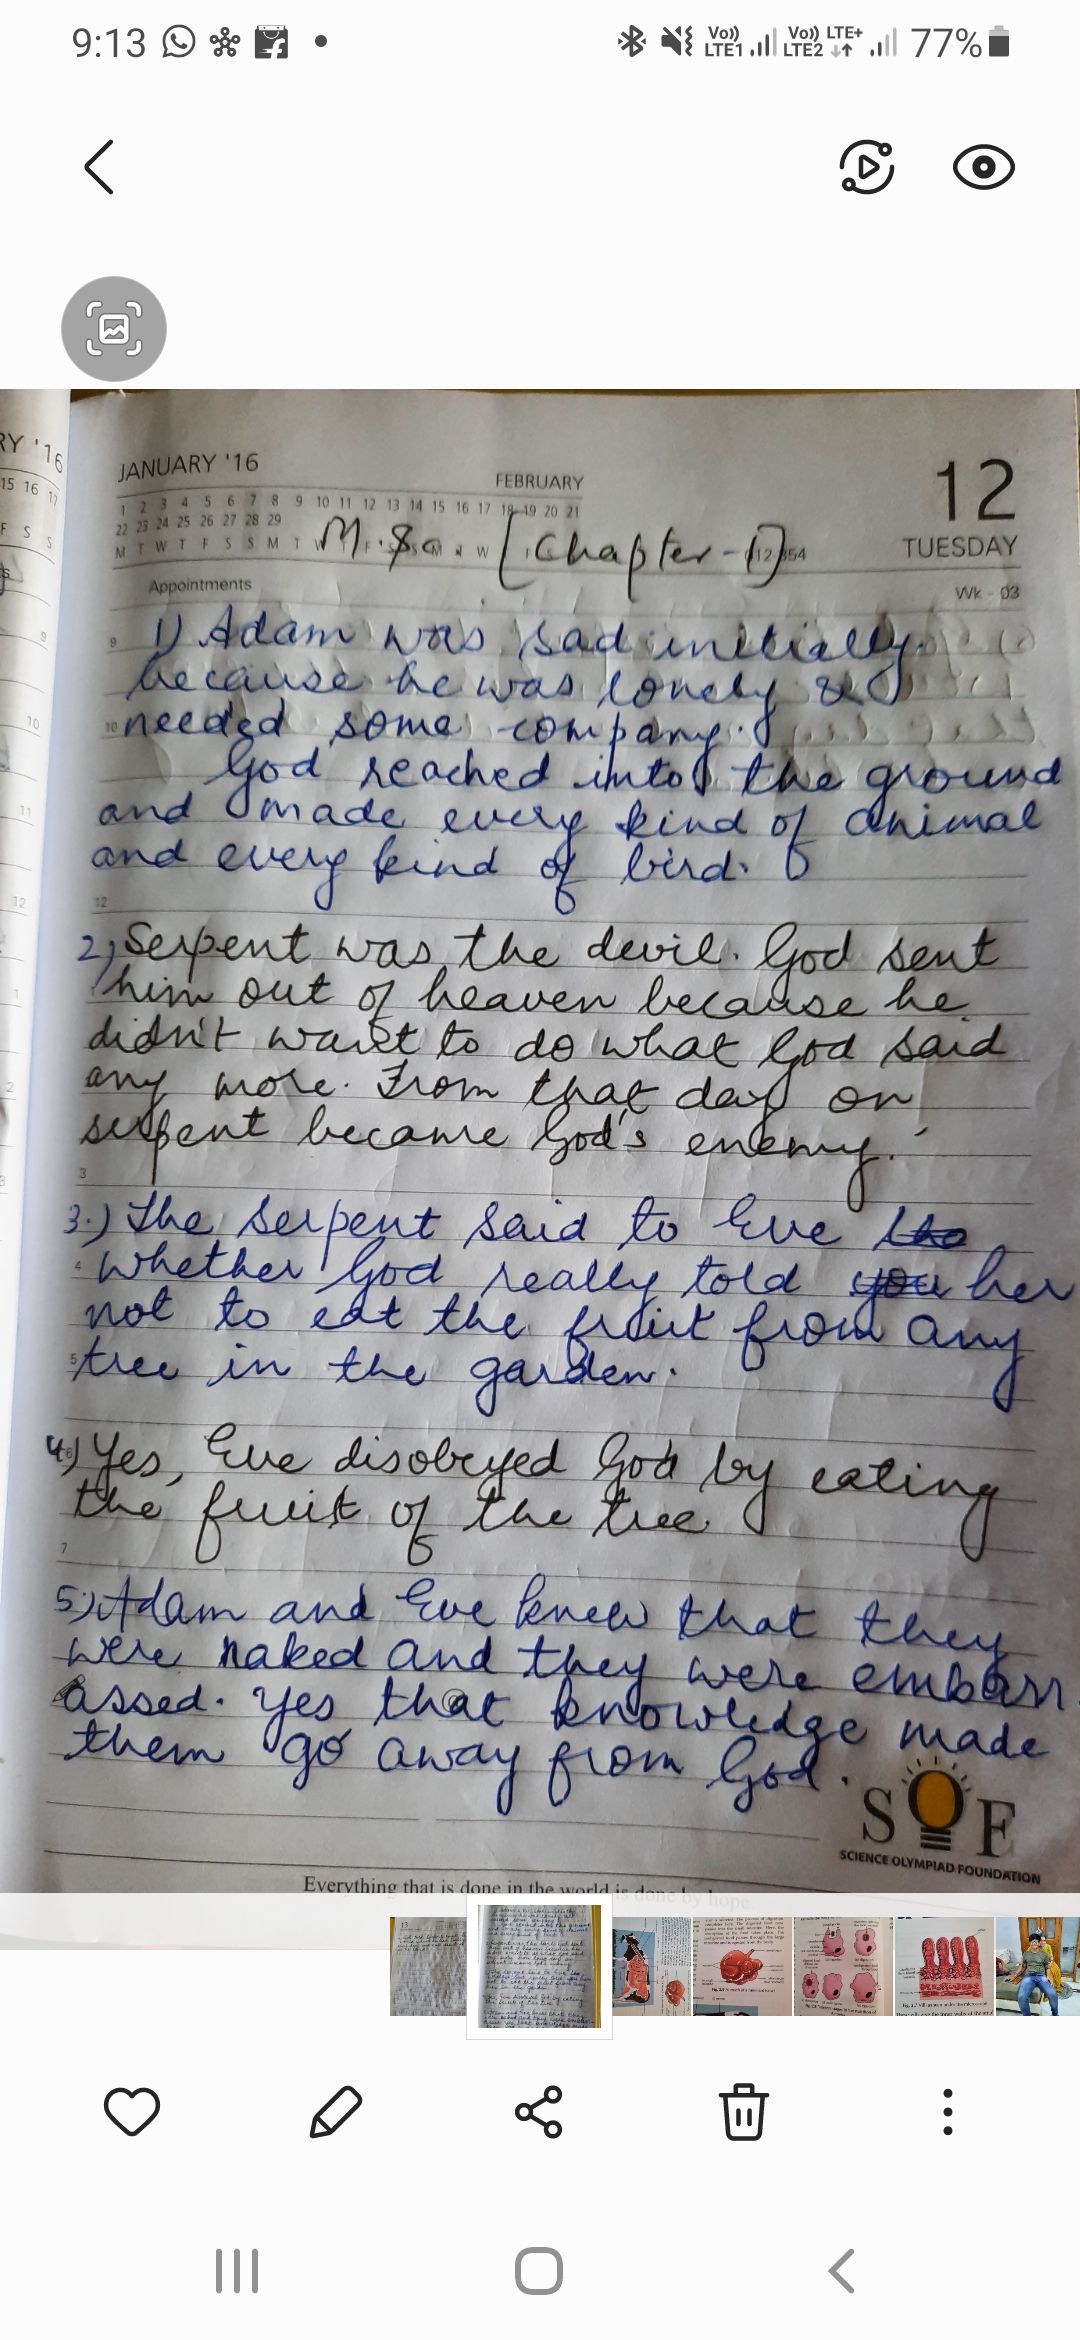 9:13
Vo)) LTE1 Vo)) LTE2 LTE+ 77%
RY '16
15 16 17
F S S
JANUARY '16
FEBRUARY
12
TUESDAY
1 2 3 4 5 6 7 8 9 10 11 12 13 14 15 16 17 18 19 20 21
22 23 24 25 26 27 28 29
M T W T F S S M T W
M.Sc. [Chapter-1]
Appointments
Wk - 03
1) Adam was sad initially.
because he was lonely &
needed some company.
God reached into the ground
and made every kind of animal
and every kind of bird.
2) Serpent was the devil. God sent
him out of heaven because he
didn't want to do what God said
any more. From that day on
serpent became God's enemy.
3.) The serpent said to Eve
whether God really told you her
not to eat the fruit from any
tree in the garden.
4) Yes, Eve disobeyed God by eating
the fruit of the tree
5) Adam and Eve knew that they
were naked and they were embarr
assed. Yes that knowledge made
them go away from God.
9
10
12
3
4
5
7
SOF
SCIENCE OLYMPIAD FOUNDATION
Everything that is done in the world is done by hope.